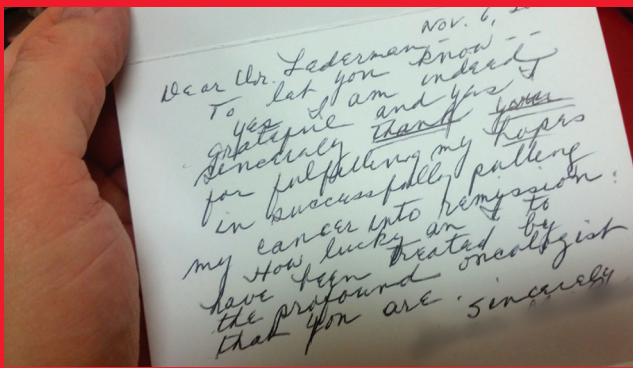 Nov. 6,
Dear Dr. Lederman
To let you know --
yes I am indeed
grateful and yes I
sincerely thank you
for fulfilling my hopes
in successfully pulling
my cancer into remission.
How lucky am I to
have been treated by
the profound oncologist
that you are. Sincerely